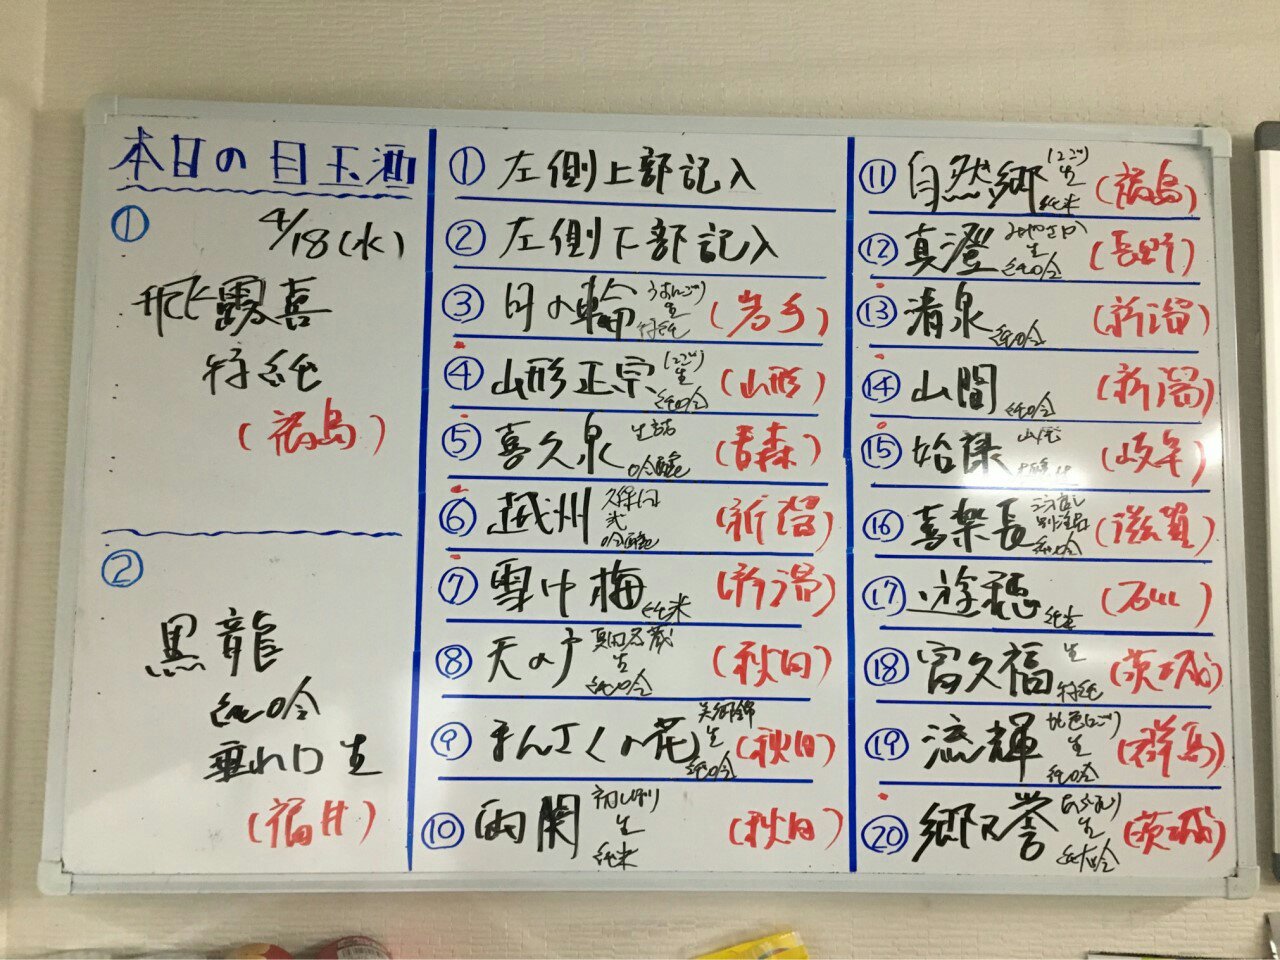 本日の目玉酒
①
4/18(水)
飛露喜
特純
(福島)
②
黒龍
純吟
垂れ口生
(福井)
① 左側上部記入
② 左側下部記入
③ 月の輪 うすにごり 生 特純 (岩手)
④ 山形正宗 にごり 生 純吟 (山形)
⑤ 喜久泉 生詰 吟醸 (青森)
⑥ 越州 弐 吟醸 (新潟)
⑦ 雪中梅 純米 (新潟)
⑧ 天の戸 生 純吟 (秋田)
⑨ まんさくの花 美郷錦 生 純吟 (秋田)
⑩ 両関 初しぼり 生 純米 (秋田)
⑪ 自然郷 にごり 生 純米 (福島)
⑫ 真澄 生 純吟 (長野)
⑬ 清泉 純吟 (新潟)
⑭ 山間 純吟 (新潟)
⑮ 始禄 山廃 (岐阜)
⑯ 喜楽長 純吟 (滋賀)
⑰ 遊穂 純米 (石川)
⑱ 富久福 生 特純 (茨城)
⑲ 流輝 桃色にごり 生 純吟 (群馬)
⑳ 郷乃誉 生 純大吟 (茨城)